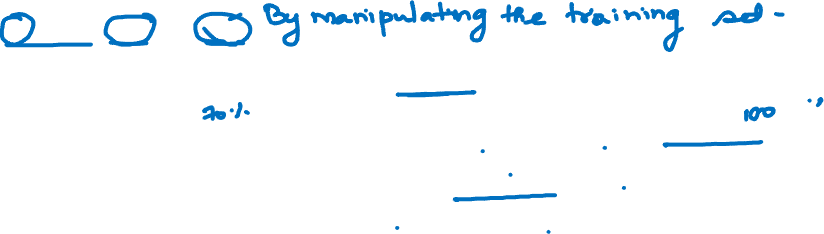 By manipulating the training set-
70% 100